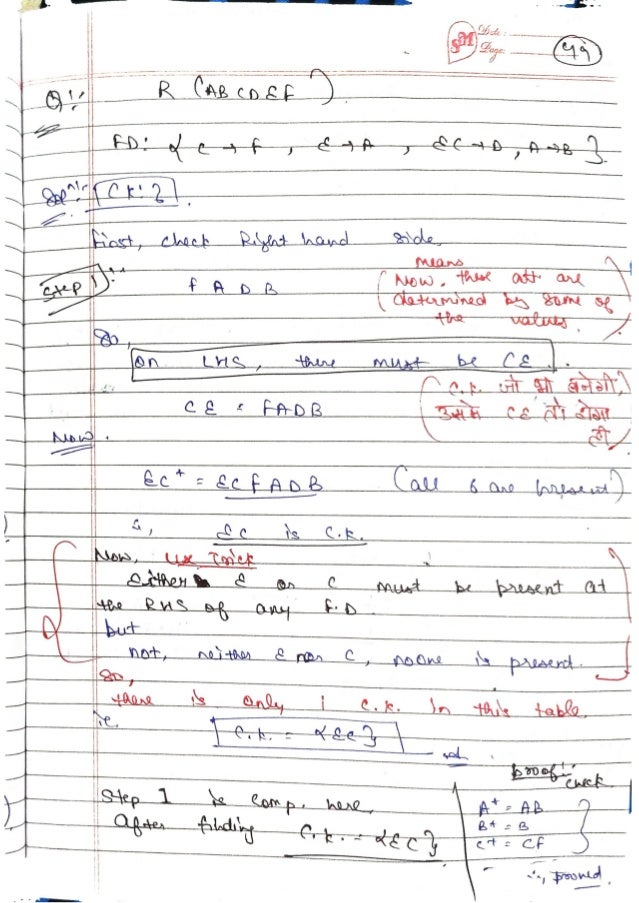 SM Date:
Page:
49
Q1:- R (ABCDEF)
FD: { C → F , E → A , EC → D , A → B }
Solⁿ:- [CK:?]
First, check Right hand side
Step 1:- F A D B
( means Now, these att are determined by some of the values. )
So,
On LHS, there must be CE.
CE = FADB
( C.K. जो भी बनेगी, उसमे CE तो होगा ही )
Now.
EC⁺ = ECFADB (all 6 are present)
So, EC is C.K.
Now, use Trick
Either E or C must be present at
the RHS of any F.D.
but
not, neither E nor C, noone is present.
So,
there is only 1 C.K. in this table.
ie. C.K. = {EC}
Step 1 is comp. here,
After finding C.K. = {EC}
proof:- check
A⁺ = AB
B⁺ = B
C⁺ = CF
∴, prooved.